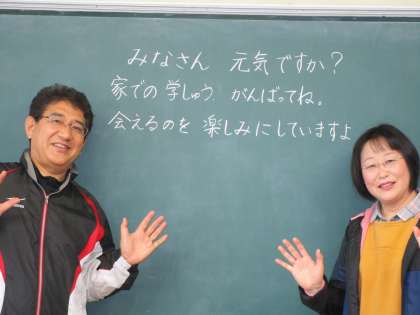 みなさん 元気ですか?
家での学しゅう がんばってね。
会えるのを 楽しみにしていますよ